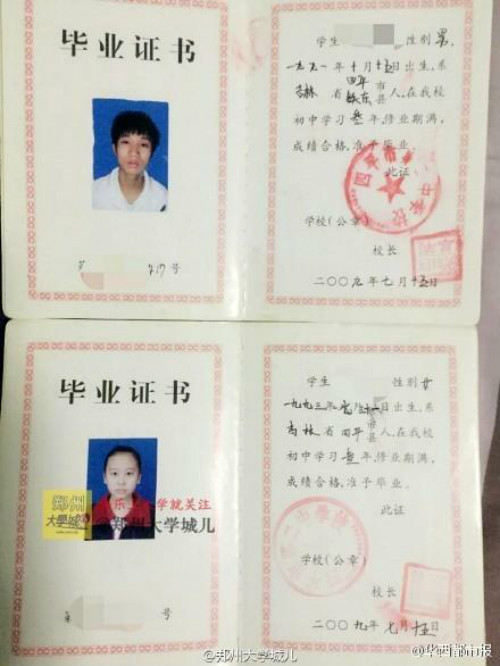 毕业证书
学生 性别男,
一九九一年十月十五日出生,系
吉林省四平铁东市县人,在我校
初中学习叁年,修业期满,
成绩合格,准予毕业。
此证
学校(公章)
校长
二〇〇九年七月十五日
第 717号
毕业证书
学生 性别女
一九九三年 十一日出生,系
吉林省四平市县人,在我校
初中学习叁年,修业期满,
成绩合格,准予毕业。
此证
学校(公章)
校长
二〇〇九年七月十五日
第 号
郑州
大學城
学就关注
@郑州大学城儿
@郑州大学城儿
@华西都市报